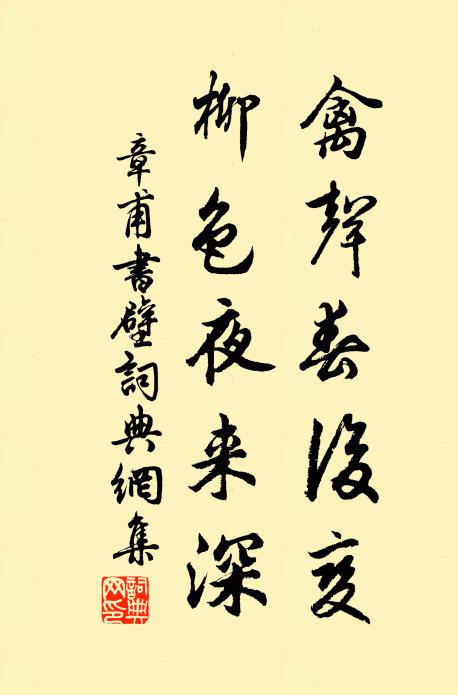 禽聲春後變
柳色夜来深
章甫書壁詞典網集
詞典网印